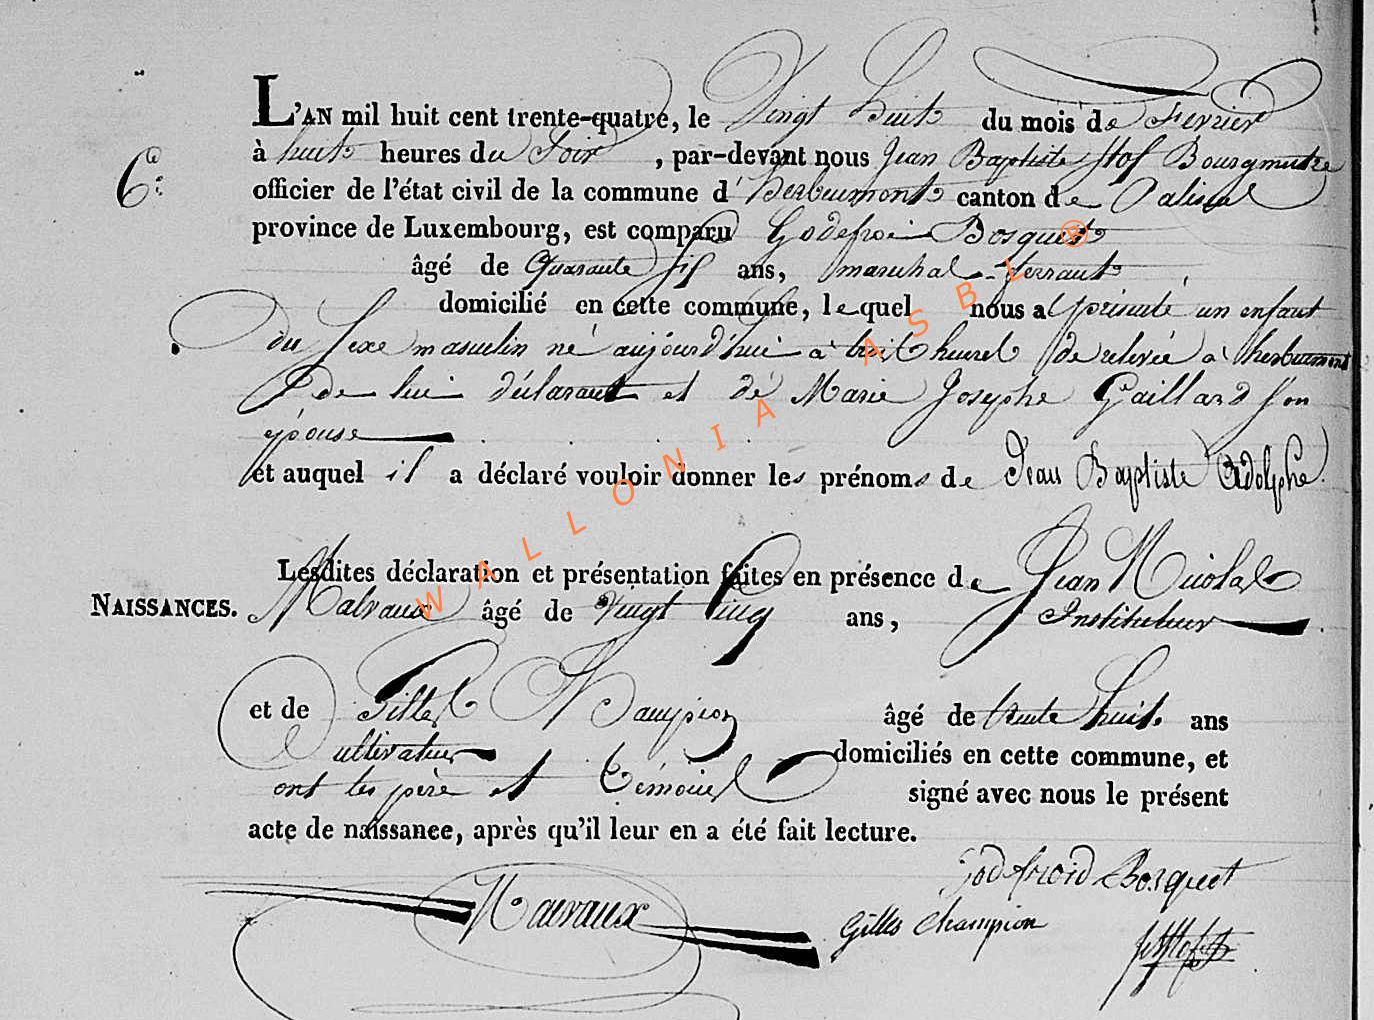 L'AN mil huit cent trente-quatre, le Vingt huit du mois de Fevrier
à huit heures du Soir, par-devant nous Jean Baptiste Stof Bourgmestre
6e
officier de l'état civil de la commune d'herbeumont canton de Paliseul
province de Luxembourg, est comparu Godefroi Bosquet
âgé de Quarante six ans, maréchal-ferrant
domicilié en cette commune, lequel nous a présenté un enfant
du Sexe masculin né aujourd'hui à trois heures de relevée à herbeumont
de lui déclarant et de Marie Josephe Gaillard son
épouse
et auquel il a déclaré vouloir donner les prénoms de Jean Baptiste Adolphe
Lesdites déclaration et présentation faites en présence de Jean Nicolas
NAISSANCES.
Malvaux âgé de vingt cinq ans, Instituteur
et de Gilles Champion âgé de trente huit ans
Cultivateur domiciliés en cette commune, et
ont les père et témoins signé avec nous le présent
acte de naissance, après qu'il leur en a été fait lecture.
Godefroid Bosquet
Malvaux
Gilles Champion
WALLONIA ASBL ®